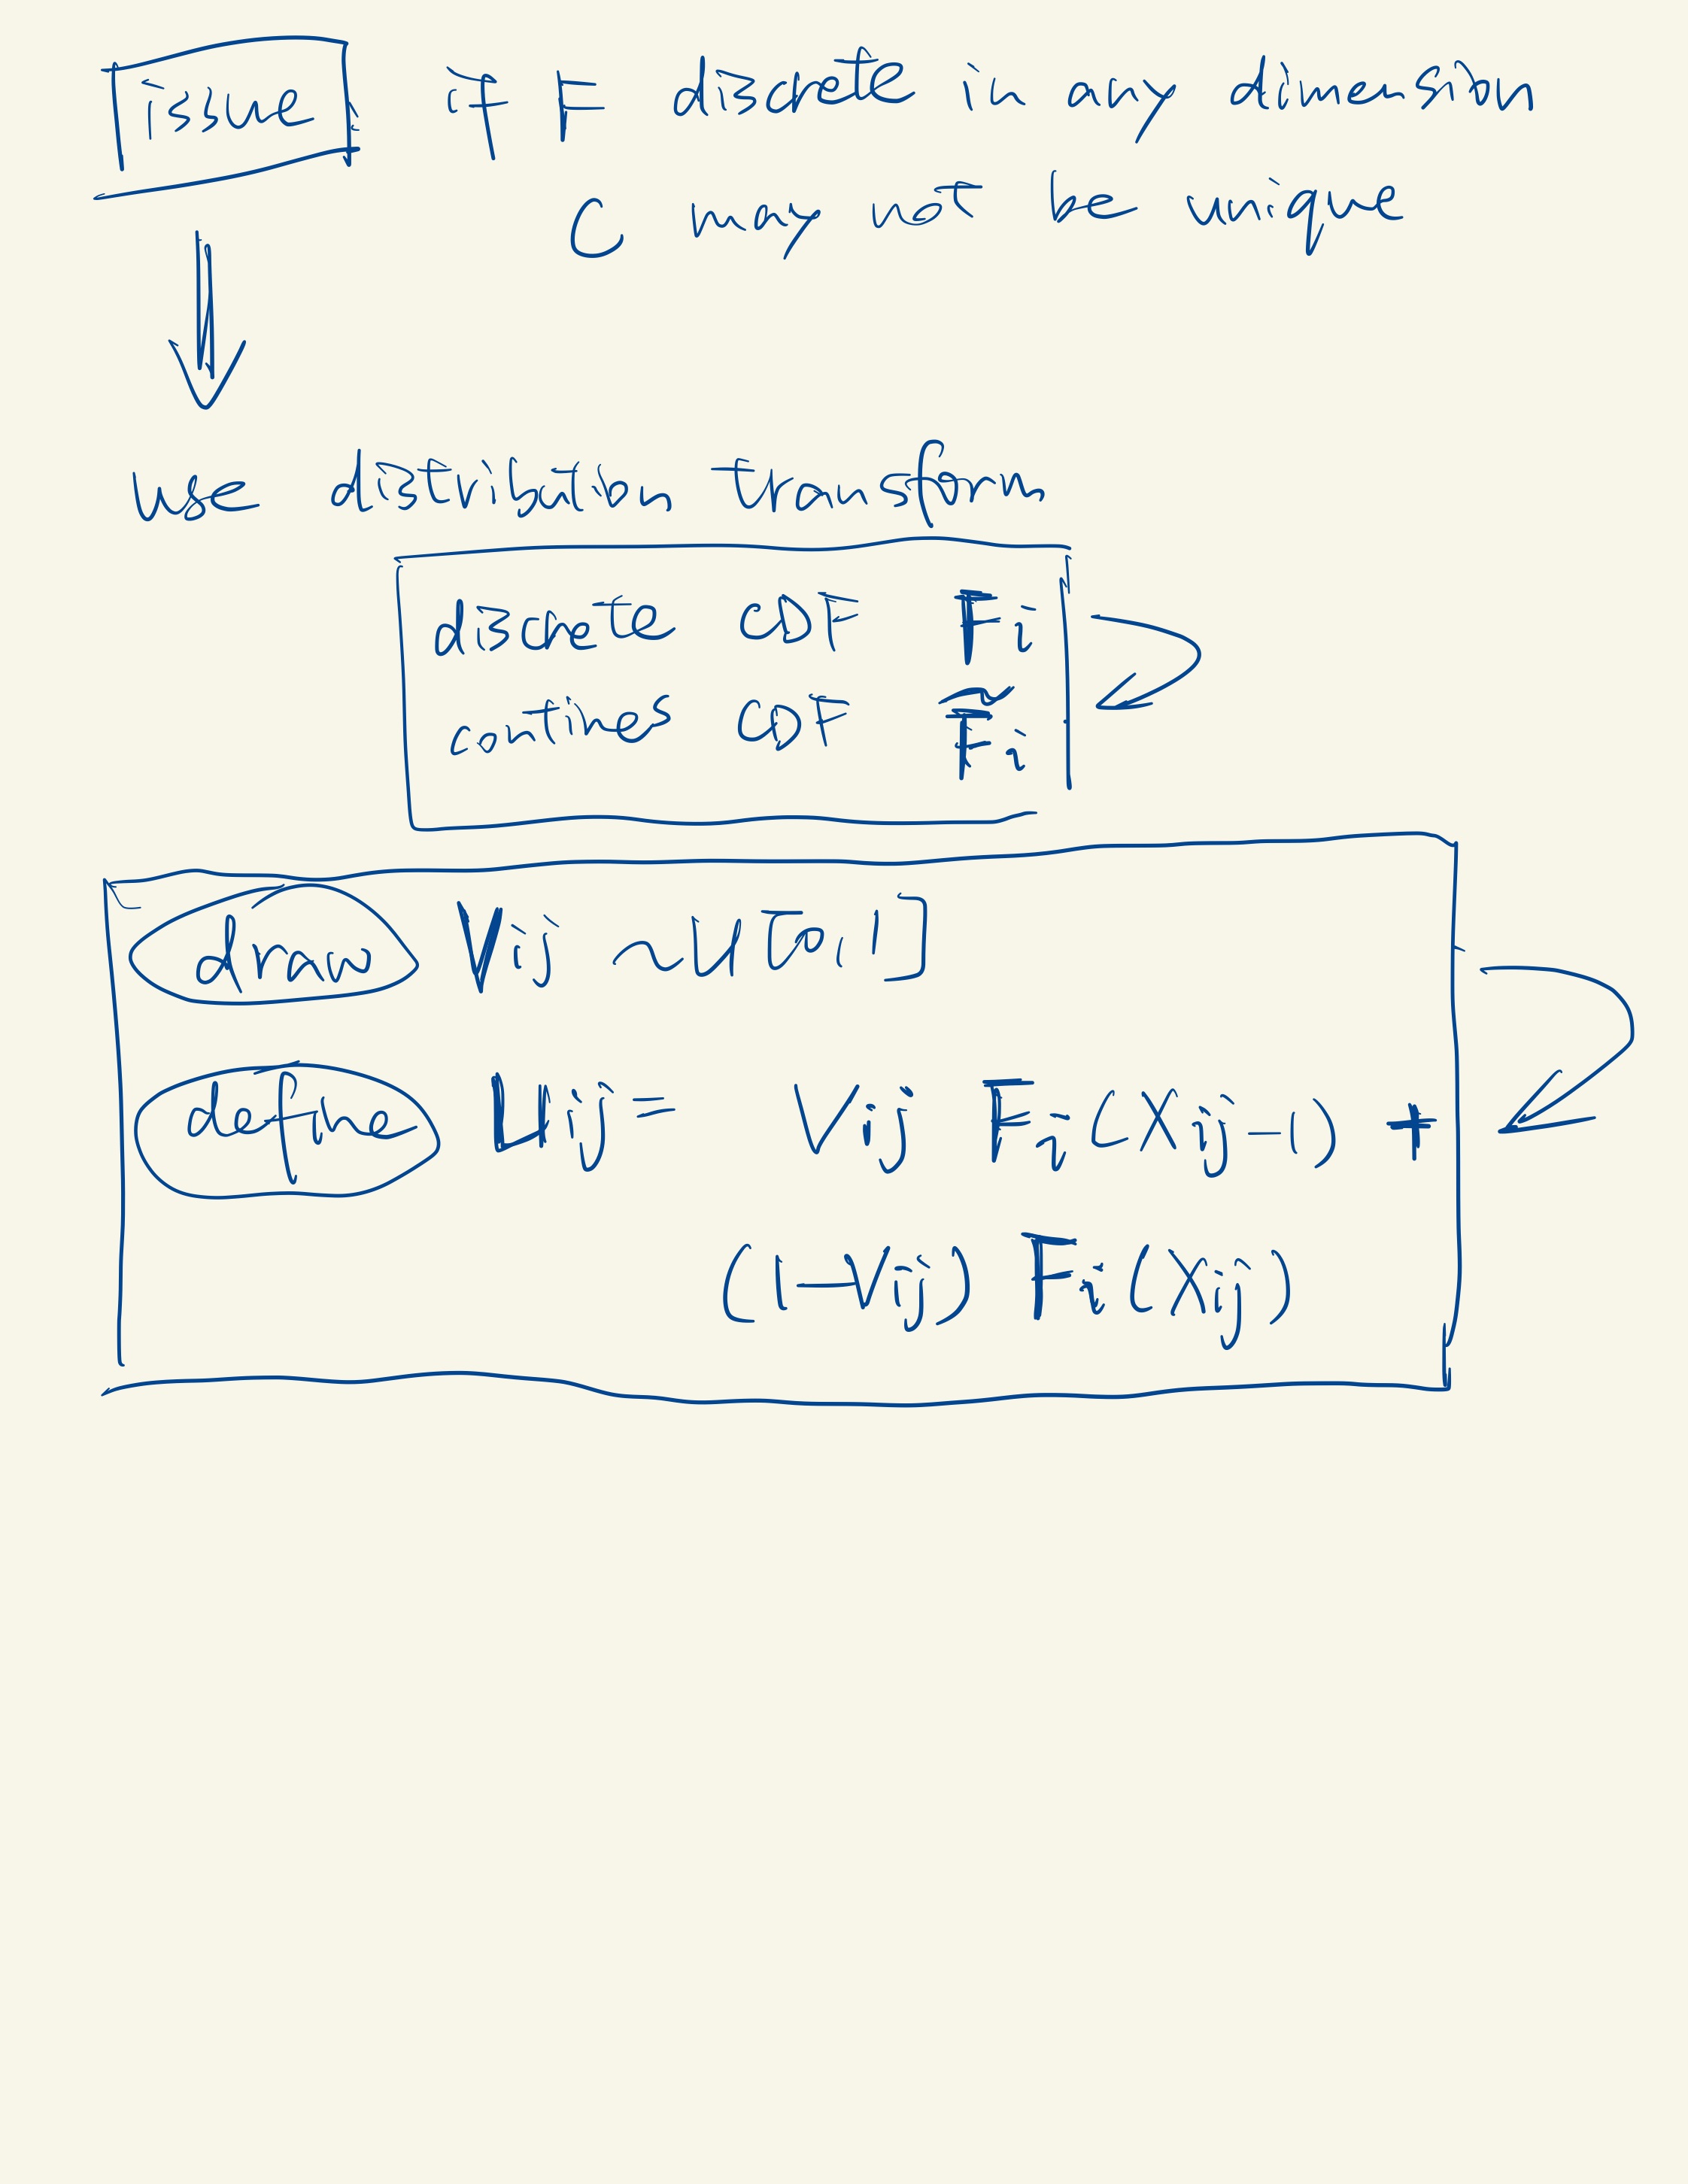 issue : if F discrete in any dimension
C may not be unique
use distribution transform
discrete CDF Fi
contines CDF F̃i
draw Vij ~U[0,1]
define Uij = Vij Fi(Xij-1) +
(1-Vij) Fi(Xij)